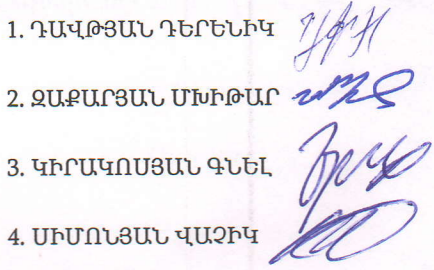 1. ԴԱՎԹՅԱՆ ԴԵՐԵՆԻԿ
2. ԶԱՔԱՐՅԱՆ ՄԽԻԹԱՐ
3. ԿԻՐԱԿՈՍՅԱՆ ԳՆԵԼ
4. ՍԻՄՈՆՅԱՆ ՎԱՉԻԿ